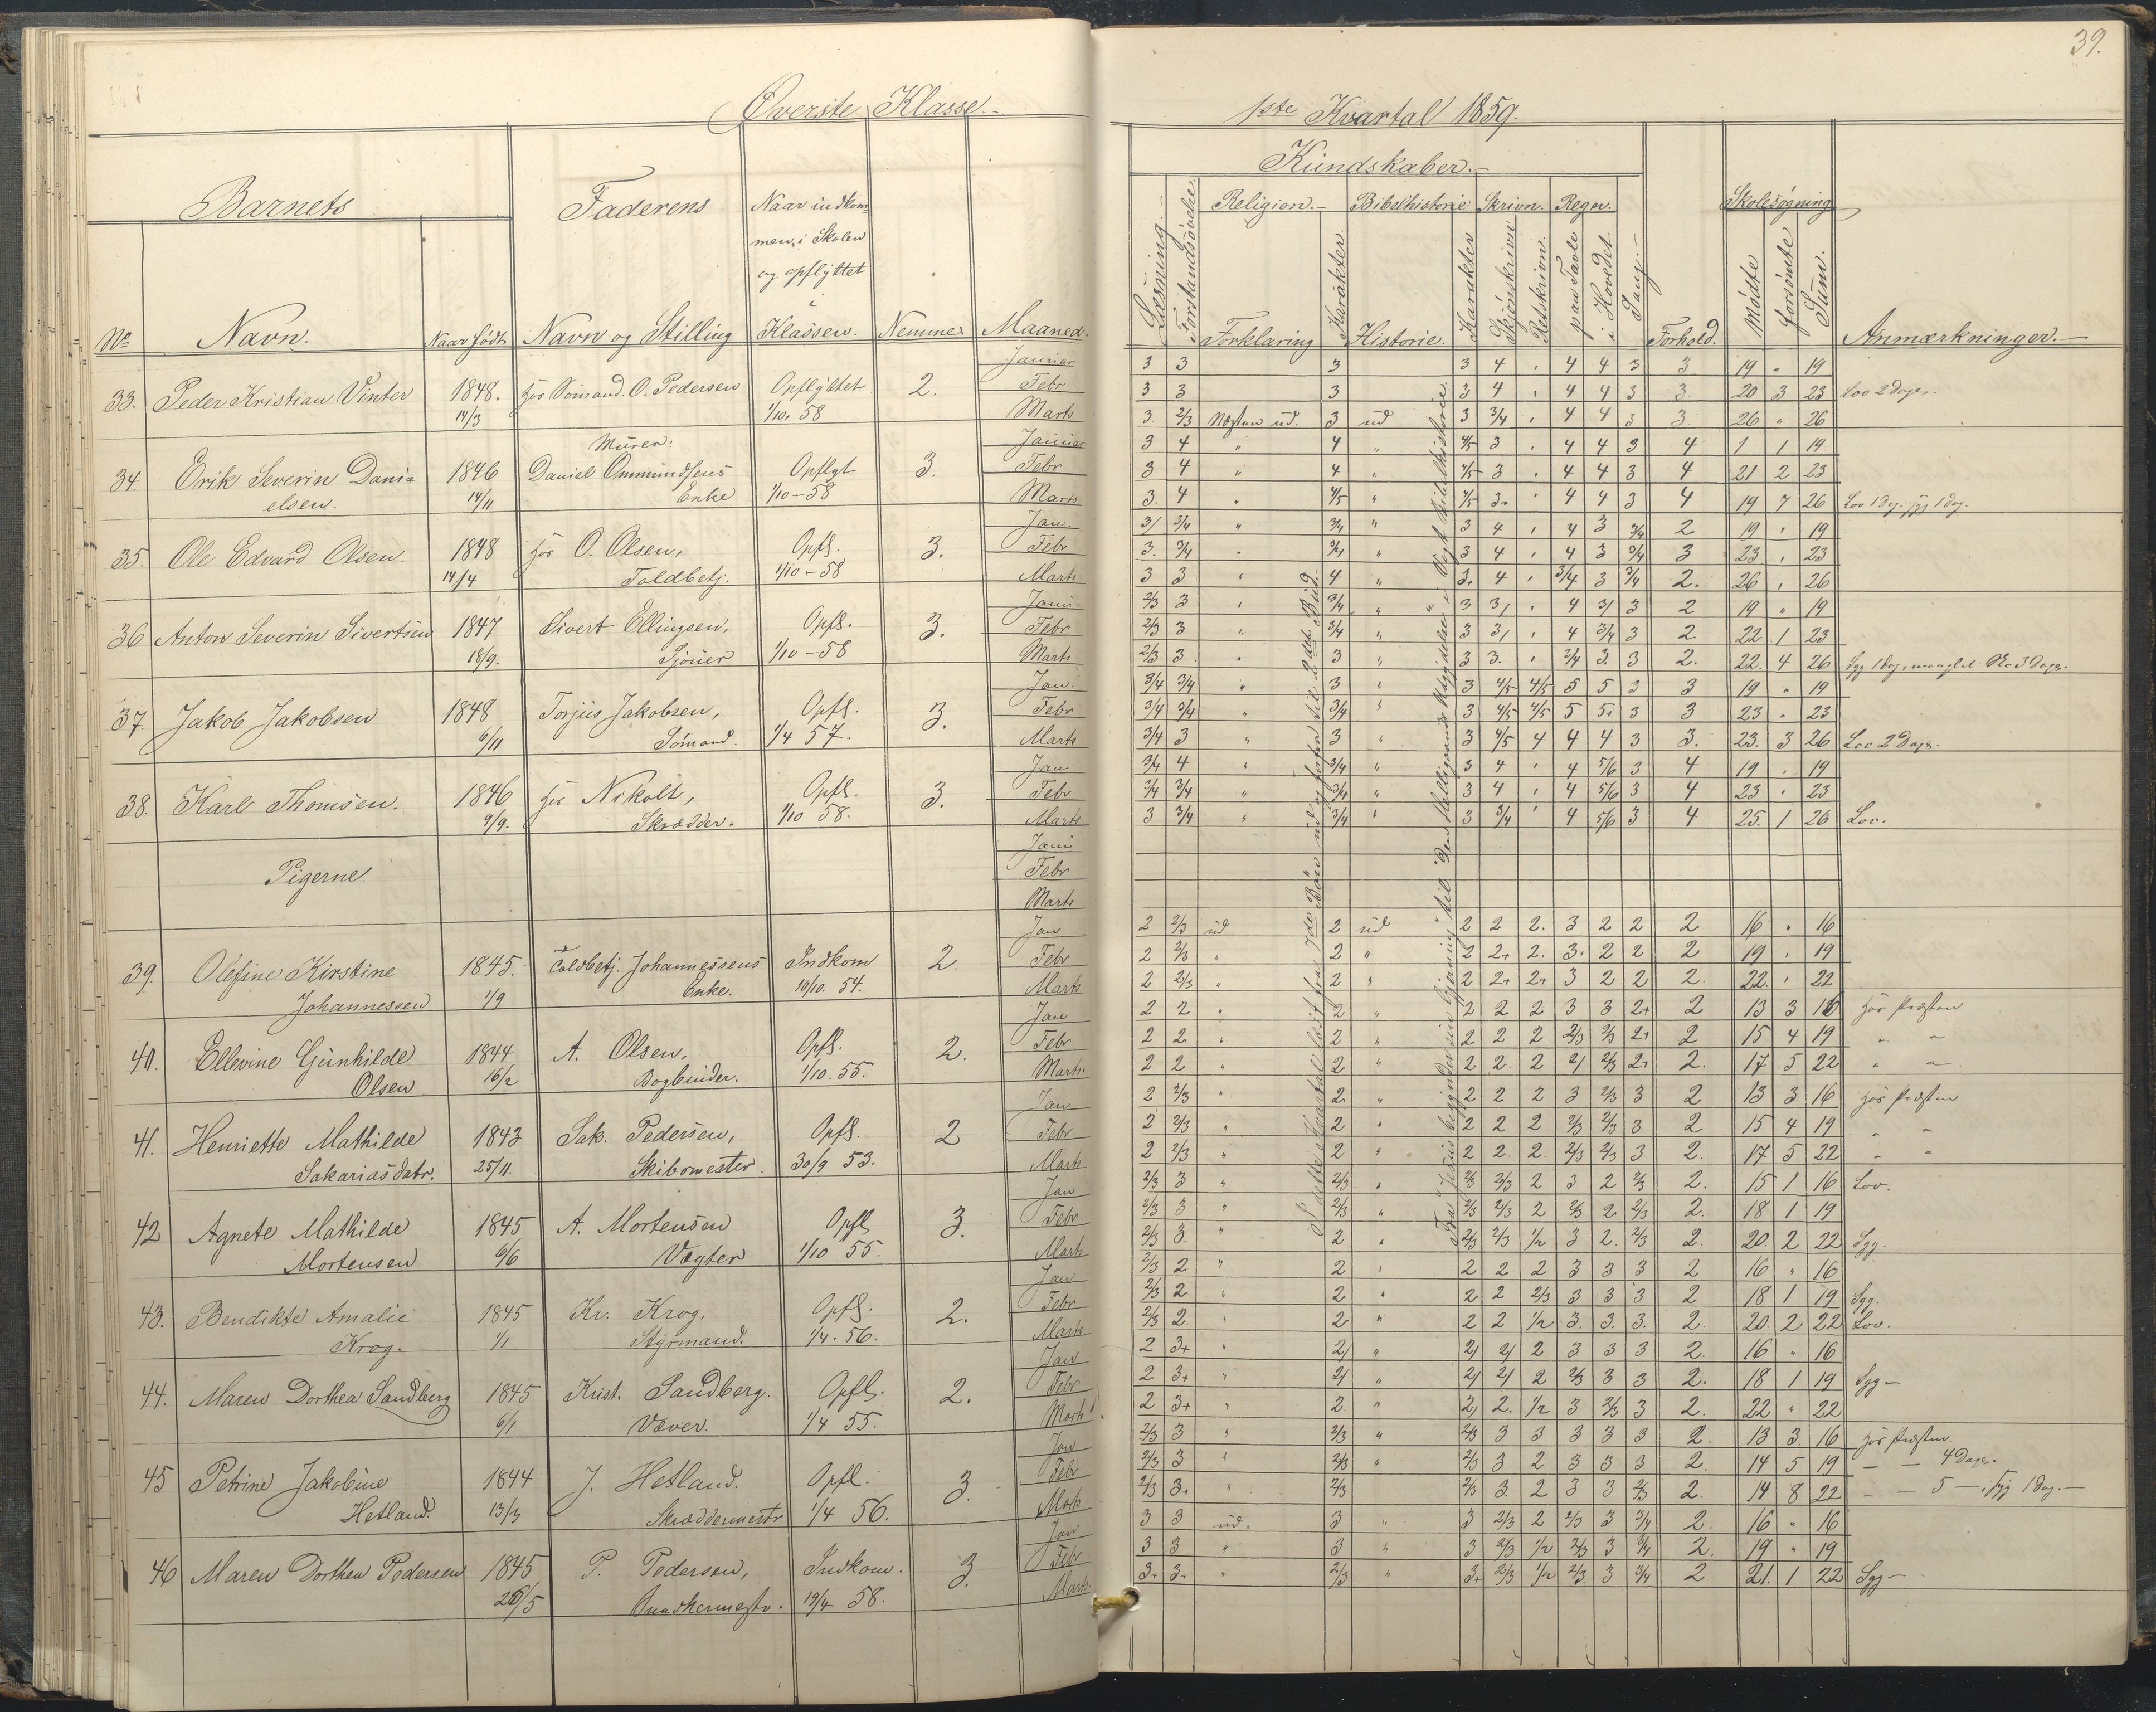 39.
Øverste Klasse.
1ste Kvartal 1859.
Barnets
Faderens
Naar indkom-
men i Skolen
og opflyttet
i
Klassen.
No
Navn.
Naar født
Navn og Stilling
Nemme.
Maaned.
Kundskaber.
Læsning.
Forstandsøvelse.
Religion.
Forklaring
Karakter.
Bibelhistorie
Historie.
Karakter
Skrivn.
Skjønskrivn
Retskrivn.
Regn.
paa Tavle
i Hovedet
Sang.
Forhold.
Skolesøgning
Mødte
forsømte
Sum.
Anmærkninger.
33. Peder Kristian Vinter 1848. 14/3 hos Sømand. O. Pedersen Opflyttet 1/10. 58 2.
Januar 3 3 3 3 4 4 4 3 3 19 " 19
Febr 3 3 3 3 4 4 4 3 3 20 3 23 Lov 2 Dage.
Marts 3 2/3 Næsten ud. 3 ud 3 3/4 4 4 3 3 26 " 26
34. Erik Severin Dani-
elsen. 1846 14/11 Murer: Daniel Ommundsens
Enke Opflyt 1/10-58 3.
Januar 3 4 " 4 " 4/5 3 4 4 3 4 1 1 19
Febr 3 4 " 4 " 4/5 3 4 4 3 4 21 2 23
Marts 3. 4 " 4/5 " 4/5 3. 4 4 3 4 19 7 26 Lov 1 Dag. syg 1 Dag.
35. Ole Edvard Olsen. 1848 14/4 hos O. Olsen,
Toldbetj. Opfl. 1/10-58 3.
Jan. 3/ 3/4 " 3/4 " 3 4 4 3 3/4 2 19 " 19
Febr 3. 3/4 " 3/4 " 3 4 4 3 3/4 3 23 " 23
Marts 3 3 " 4 " 3. 4 3/4 3 3/4 2. 26 " 26
36 Anton Severin Sivertsen 1847 18/9. Sivert Ellingsen,
Sjouer Opfl. 1/10-58 3.
Janu. 2/3 3 " 3/4 " 3 3/ 4 3/ 3 2 19 " 19
Febr 2/3 3 " 3/4 " 3 3/ 4 3/4 3 2 22 1 23
Marts 2/3 3 " 3 " 3 3. 3/4 3. 3 2. 22. 4 26 Syg 1 Dag, manglet Sko 3 Dage.
37. Jakob Jakobsen 1848 6/11 Torjus Jakobsen,
Sømand. Opfl. 1/4 57. 3.
Jan. 3/4 3/4 " 3 " 3 4/5 4/5 5 5 3 3 19 " 19
Febr 3/4 3/4 " 3/4 " 3 4/5 4/5 5 5. 3 3 23 " 23
Marts 3/4 3 " 3 " 3 4/5 4 4 4 3 3. 23. 3 26 Lov 2 Dage.
38. Karl Thomsen. 1846 9/9. hos Nikolt,
Skrædder. Opfl. 1/10 58. 3.
Jan 3/4 4 " 3/4 " 3 4 4 5/6 3 4 19 " 19
Febr 3/4 3/4 " 3/4 " 3 4 4 5/6 3 4 23 " 23
Marts 3 3/4 " 3/4 " 3 3/4 4 5/6 3 4 25. 1 26 Lov.
Pigerne.
Janu
Febr
Marts
39. Olefine Kirstine
Johannessen 1845. 1/9 Toldbetj. Johannessens
Enke. Indkom 10/10. 54. 2.
Jan 2 2/3 ud 2 ud 2 2 2. 3 2 2 2 16 " 16
Febr 2 2/3 " 2 " 2 2+ 2. 3. 2 2 2 19 " 19
Marts 2 2/3 " 2 " 2 2+ 2+ 3 2 2 2. 22. " 22
40. Ellevine Gunhilde
Olsen 1844 16/2 A. Olsen,
Bogbinder. Opfl. 1/10. 55. 2.
Jan 2 2 " 2 " 2 2 2 3 3 2+ 2 13 3 16 hos Præsten
Febr 2 2 " 2 " 2 2 2 2/3 2/3 2+ 2 15 4 19 " "
Marts 2 2 " 2 " 2 2. 2 2/ 2/3 2+ 2. 17 5 22 " "
41. Henriette Mathilde
Sakariasdatr. 1843 25/11. Sak. Pedersen,
Skibsmester. Opfl. 30/9 53. 2
Jan 2 2/3 " 2 " 2 2 2 3 2/3 3 2 13 3 16 hos Præsten
Febr 2 2/3 " 2 " 2 2 2 2/3 2/3 3 2 15 4 19 " "
Marts 2 2/3 " 2 " 2 2. 2. 2/3 2/3 3 2. 17 5 22 " "
42 Agnete Mathilde
Mortensen 1845 6/6 A. Mortensen
Vægter Opfl 1/10 55. 3.
Jan 2/3 3 " 2/3 " 2/3 2/3 2 3 2 2/3 2. 15 1 16 Lov.
Febr 2/3 3 " 2/3 " 2/3 2/3 2 2/3 2 2/3 2. 18 1 19
Marts 2/3 3 " 2 " 2/3 2/3 1/2 3 2. 2/3 2. 20. 2 22 Syg.
43. Bendikte Amalie
Krog. 1845 1/1 Kr. Krog.
Styrmand. Opfl. 1/4. 56. 2.
Jan 2/3 2 " 2 " 2 2 2 3 3 3 2 16 " 16
Febr 2/3 2 " 2 " 2 2 2/3 3 3 3 2 18 1 19 Syg.
Marts 2/3 2. " 2 " 2 2 1/2 3. 3. 3. 2. 20. 2 22 Lov.
44. Maren Dorthea Sandberg 1845 6/1 Krist. Sandberg.
Væver. Opfl. 1/4 55. 2.
Jan 2 3+ " 2/ " 2/ 2/ 2 3 3 3 2. 16 " 16
Febr 2 3+ " 2/ " 2/ 2/ 2 2/3 3 3 2. 18 1 19 Syg-
Marts 2 3+ " 2 " 2/ 2. 1/2 3 2/3 3 2. 22 " 22
45 Petrine Jakobine
Hetland. 1844 13/3 J. Hetland.
Skræddermestr Opfl. 1/4 56. 3.
Jan 2/3 3 " 2/3 " 2/3 3 3 3 3 3 2. 13 3. 16 hos Præsten.
Febr 2/3 3 " 2/3 " 2/3 3 2 3 3 3 2. 14 5 19 - - 4 Dage.
Marts 2/3 3. " 2/3 2/3 3. 2 3 3 2/3 2. 14 8 22 - - 5 -, Syg 1 Dag.-
46 Maren Dorthea Pedersen 1845 26/5 P. Pedersen,
Snedkermestr. Indkom. 19/4 58. 3.
Jan 3 3 ud. 3 " 3 2/3 2 2/3 3 3/4 2. 16 " 16
Febr 3 3 " 3 " 3 2/3 1/2 2/3 3 3/4 2. 19 " 19
Marts 3. 3. " 2/3 " 3+ 2/3 1/2 2/3. 3 3/4 2. 21. 1 22 Syg-